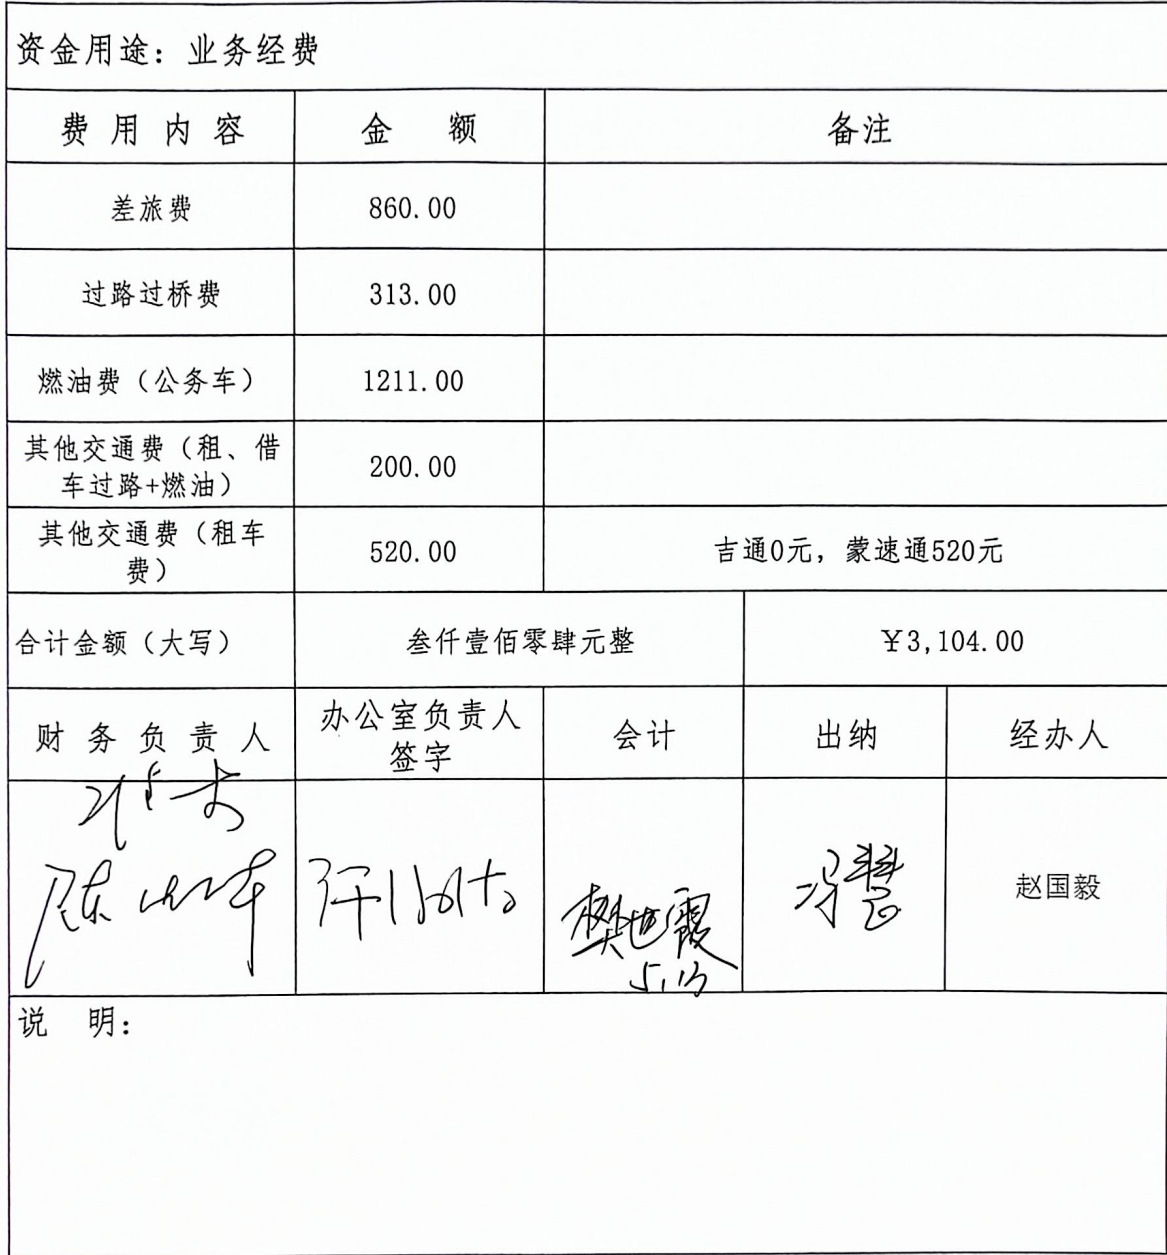 资金用途：业务经费
费用内容 金额 备注
差旅费 860.00
过路过桥费 313.00
燃油费（公务车） 1211.00
其他交通费（租、借
车过路+燃油） 200.00
其他交通费（租车
费） 520.00 吉通0元，蒙速通520元
合计金额（大写） 叁仟壹佰零肆元整 ¥3,104.00
财务负责人 办公室负责人
签字 会计 出纳 经办人
樊旭霞 冯慧 赵国毅
5.13
说 明：